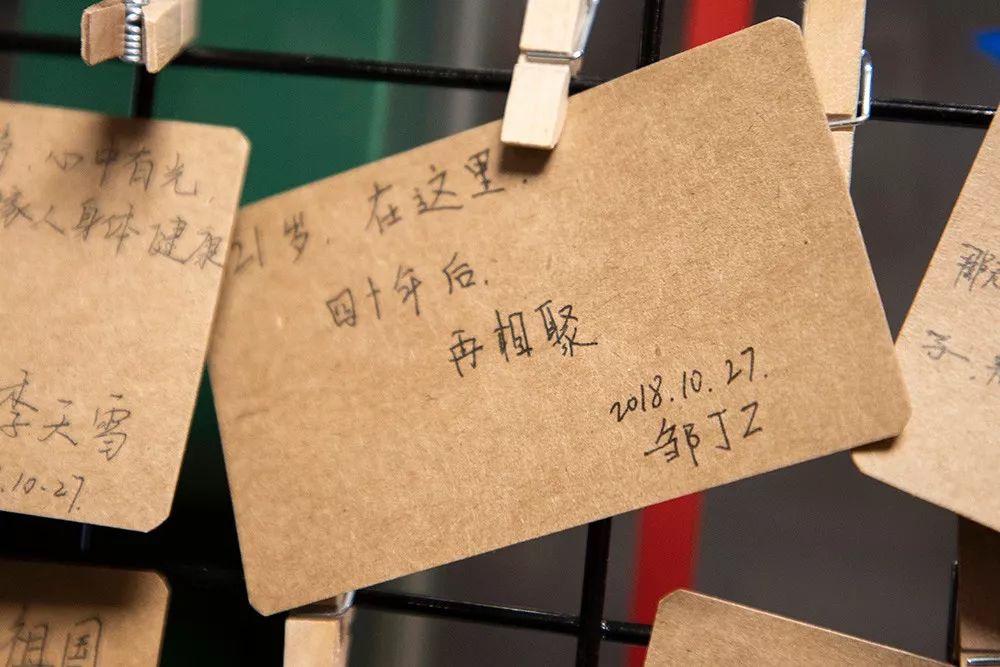 21岁，在这里，
四十年后，
再相聚
2018.10.27.
邹丁乙
心中有光，
家人身体健康
李天雪
.10.27.
祖国
子.